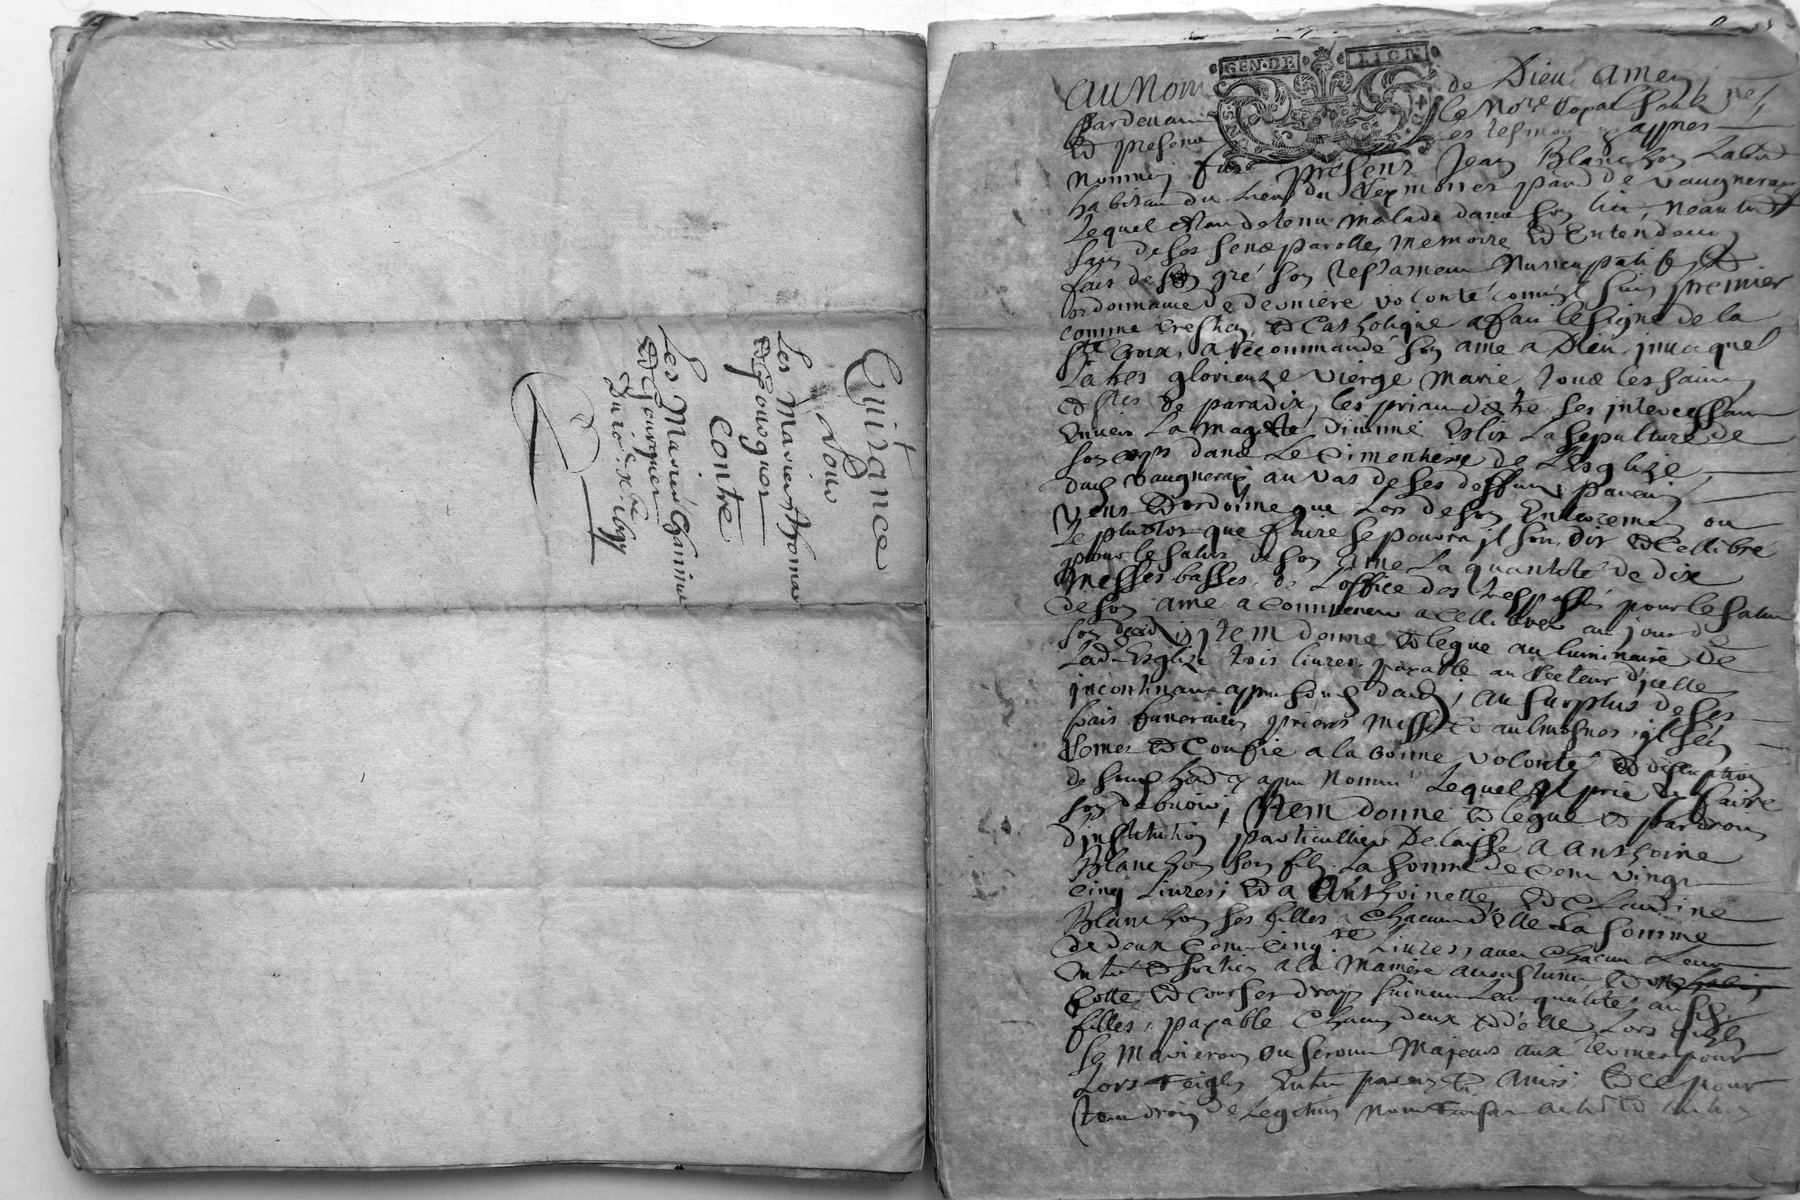 Quittance
Pour
Les Mariés Thomas
Et Gouvguer
Contre
Les Mariés
Et Gourguer
GEN·DE LION
Au Nom de Dieu Amen
pardevant le No.re Royal Soub.né
Et presence les tesmoins appres
nommes fut present Jean Blanchon Lab.r
habitant du Lieu du par. de Vaugneray
Lequel Estan detenu malade dans son lict, neantm.t
sain de ses sens parolle, memoire Et Entendem.t
fait de son gré son Testament Nuncupatif Et
ordonnance de derniere volonté comme suit premier
comme Crestien Et Catholique a fait le signe de la
S.te Croix, a Recommandé son ame a Dieu, invoqué
La tres glorieuze Vierge Marie, tous les saints
Et s.tes de paradix, les priant d'estre ses intercesseurs
Envers La Magesté divinne Eslit La sepulture de
son corps dans Le Cimentiere de L'Esglize
dud. Vaugneray au Vas de ses deffuns parens
Veut Et ordonne que Lors de son Enterrement ou
Le plustost que faire se pourra il soit dit Et Cellebré
pour le salut de son ame La quantité de dix
Messes basses de L'office des trespassés pour le salut
de son ame a commencer a cellebrer au jour de
son deceds, item donne Et legue au luminaire de
Lad. Esglize trois livres payable au Recteur d'icelle
incontinant apres son d. deceds, au surplus de ses
frais funeraires prieres messes Et aulmosnes, il s'en
Remet Et Confie a la bonne volonté Et discretion
de son h.er apres nommé Lequel il prie de faire
son debvoir, Item donne Et legue Et par droit
d'institution particulliere Delaisse a Anthoine
Blanchon son fils La somme de Cent vingt
cinq Livres; Et a Anthoinette, Et Claudine
Blanchon ses filles a Chacune d'elle La somme
de deux Cent Cinq.te Livres, avec Chacun Leur
a la Maniere acoustumé, Et
Et Coffres draps suivant Leur qualités ausd.
filles, payable Chacun deux Et d'elle, Lors quils
se Marieront ou seront Majeurs aux termes pour
Lors Reiglés Entre parens Et Amis, Et Ce pour
tout droit de Legitime